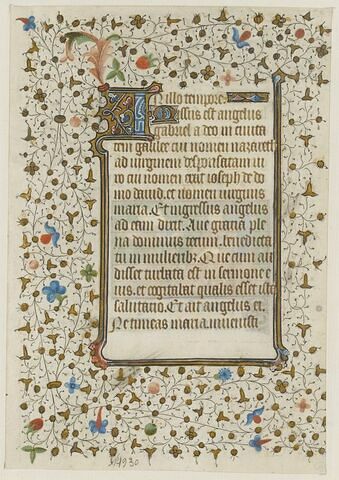 In illo tempore
Missus est angelus
gabriel a deo in ciuita
tem galilee cui nomen nazareth
ad uirginem desponsatam ui
ro cui nomen erat ioseph de do
mo dauid. et nomen uirginis
maria. Et ingressus angelus
ad eam dixit. Aue gratia ple
na dominus tecum. benedicta
tu in mulierib; Que cum au
disset turbata est in sermone e
ius. et cogitabat qualis esset ista
salutatio. Et ait angelus ei.
Ne timeas maria inuenisti